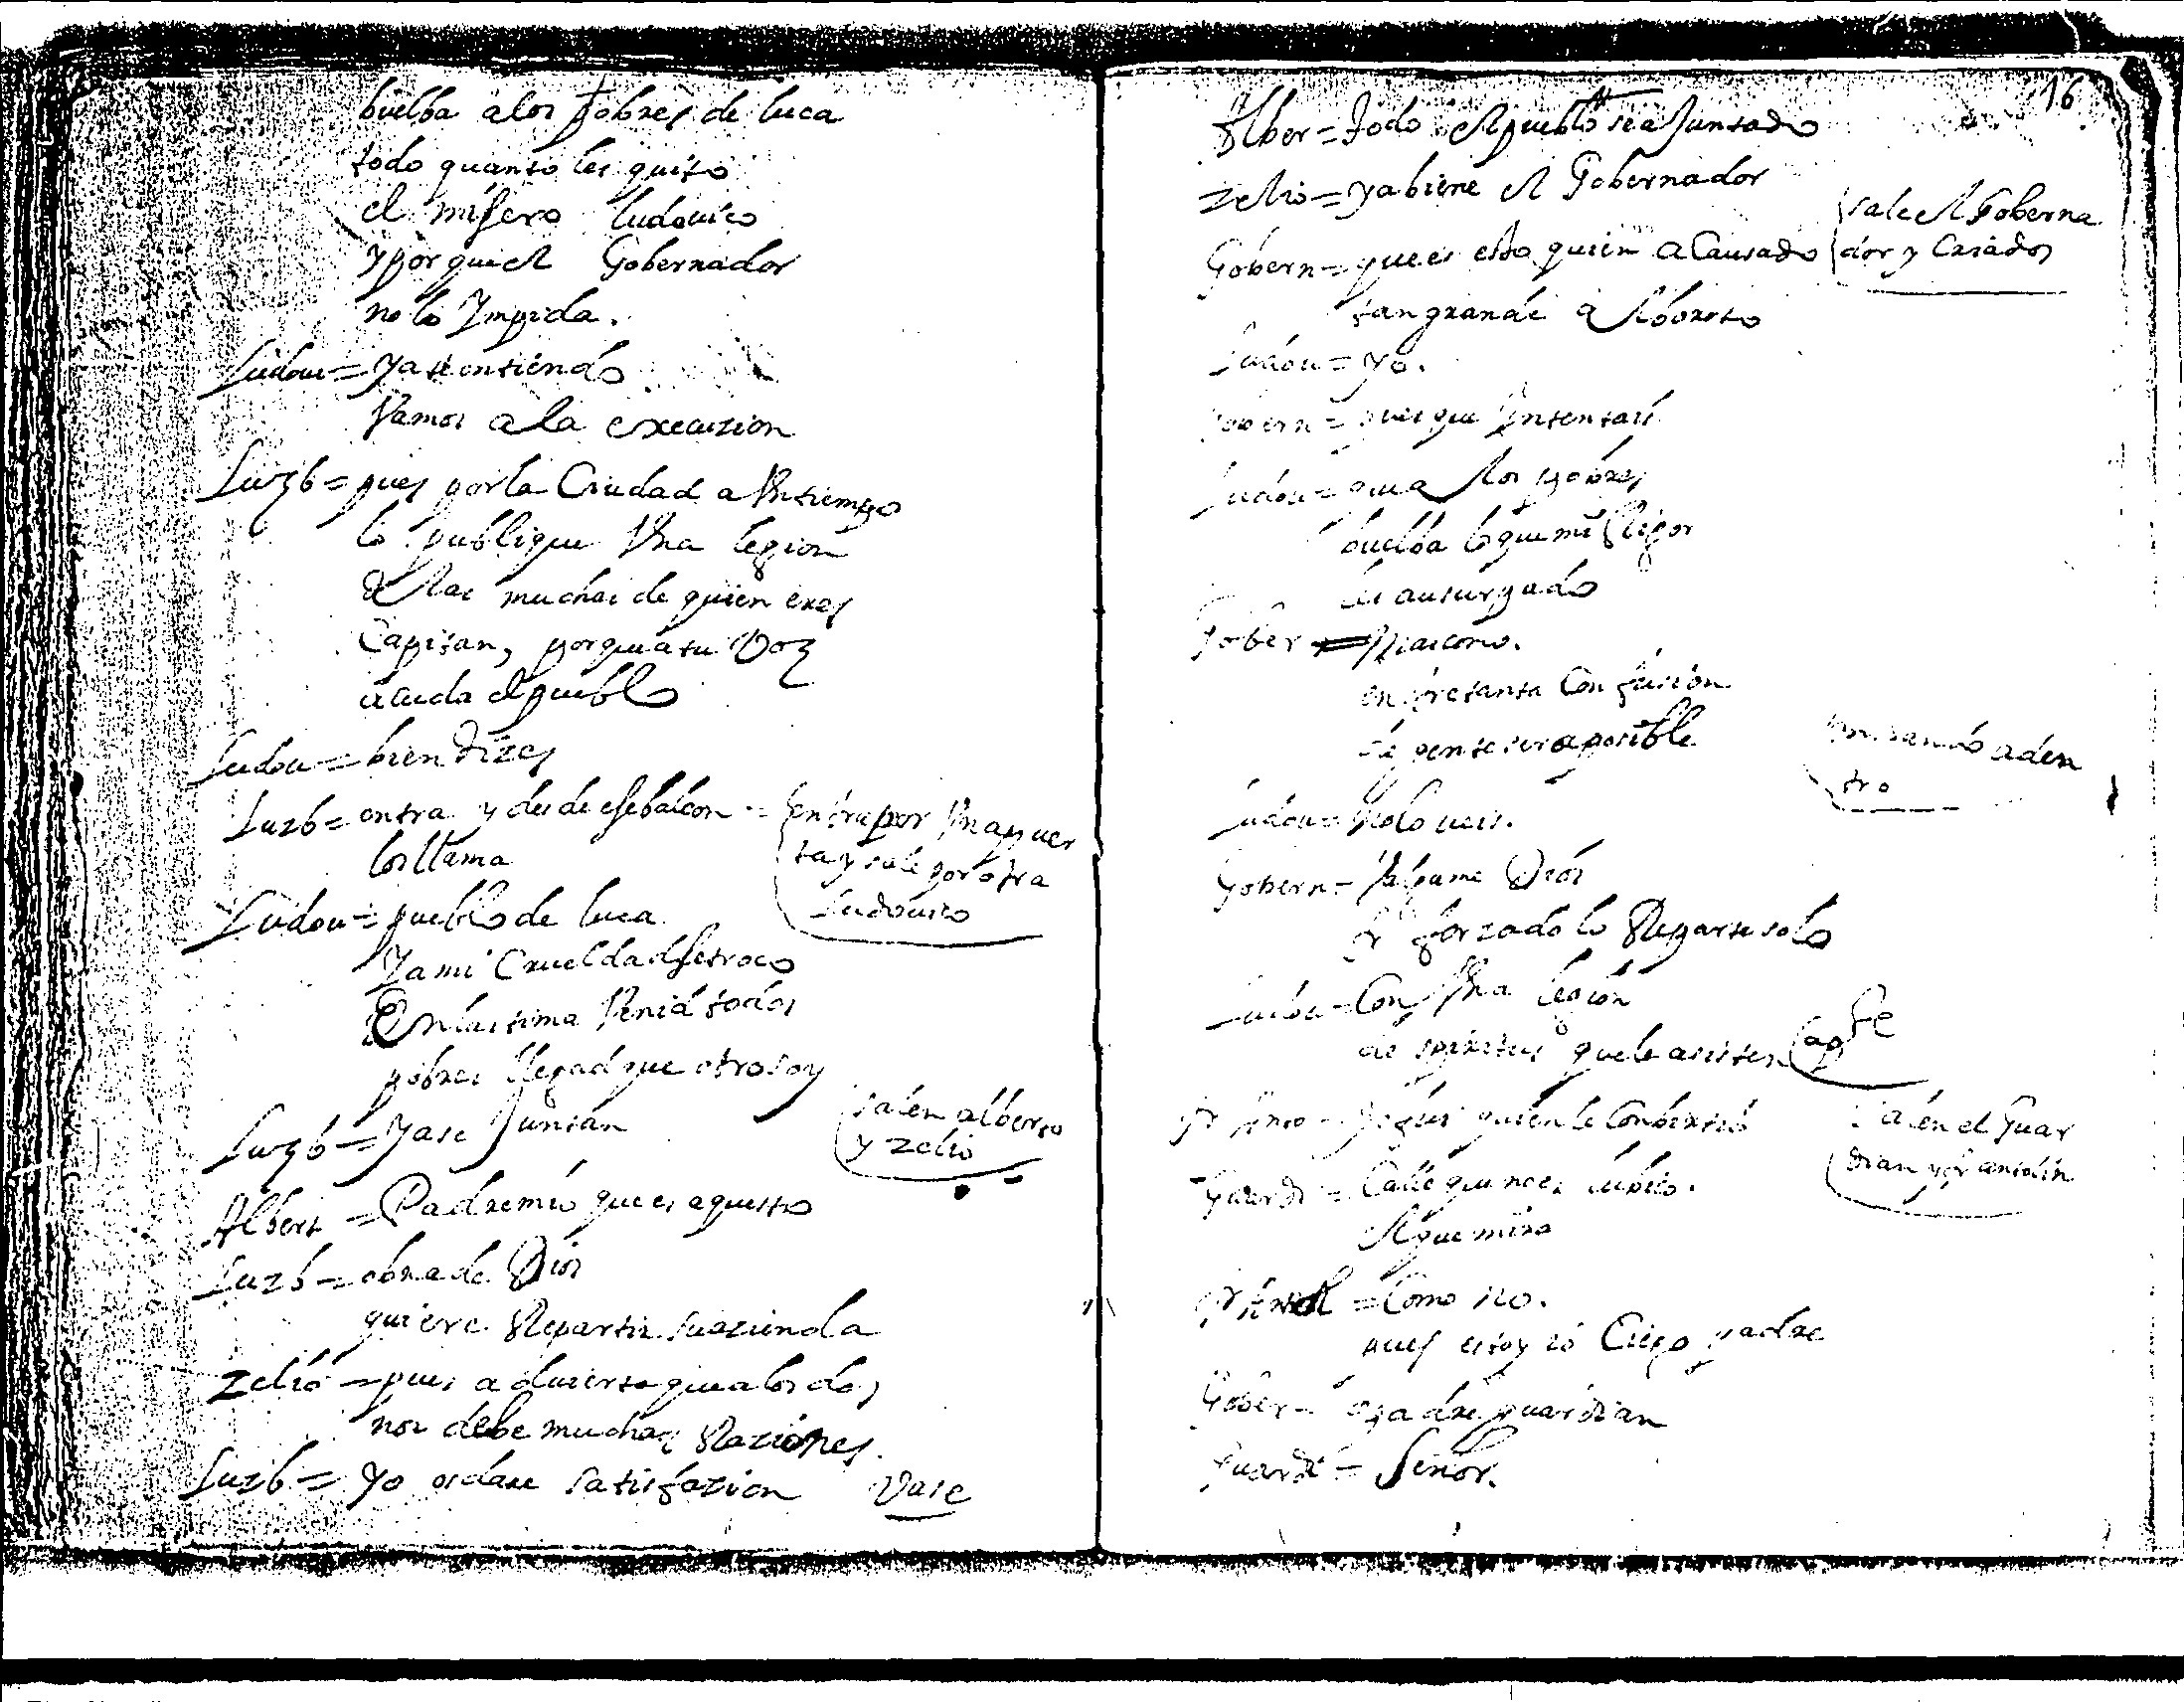 buelba alos pobres de luca
todo quanto les quito
el misero ludouico
y por que el Gobernador
no lo Ympida.
Ludou = ya te entiendo
Vamos a la execuzion
Luzb = pues por la Ciudad a Vn tiempo
lo publique Vna legion
de las muchas de quien eres
Capitan, porque a tu Voz
acuda el pueblo
Ludou = bien dizes
Luzb = entra y desde ese balcon
los llama
entra por Vna puer
ta y sale por otra
Ludouico
Ludou = pueblo de luca
Ya mi Crueldad se troco
En lastima Venid todos
pobres llegad que otro soy
Luzb = Ya se Juntan
salen alberto
y zelio
Albert = Padre mio que es aquesto
Luzb = obra de Dios
quiere Repartir su azienda
Zelio = pues aduierta que a los dos
nos debe muchas Raziones.
Luzb = yo os dare satisfazion Vase
16
Alber = todo el pueblo se a Juntado
Zelio = ya biene el Gobernador
sale el Goberna
dor y Criados
Gobern = que es esto quien a Causado
tan grande alboroto
Ludou = yo.
Gobern = pues que Yntentais
Ludou = que a los pobres
buelba lo que mi Rigor
les a usurpado
Gober = 
entre tanta Confusion
de gente sera posible
mirando aden
tro
Ludou = Ya lo ueis.
Gobern = Valgame Dios
es forzado lo Reparte solo
Ludou = Con Vna legion
de spiritus que le asisten
apte
fr Anto = Jesus quien le Conbirtio
salen el Guar
dian y fr antolin
Guardi = Calle que no es lubico.
el que mira
fr Antol = Como no.
pues estoy io Ciego padre
Gober = padre guardian
Guardi = Señor.